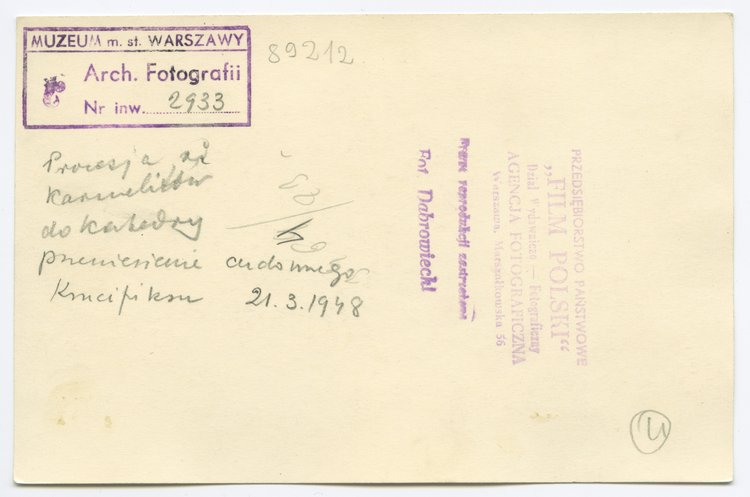 MUZEUM m. st. WARSZAWY
Arch. Fotografii
Nr inw. 2933
89212
Procesja od
Karmelitów
do katedry
przeniesienie cudownego
Krucifiksu 21.3.1948
Fot. Dabrowiecki
Prawa reprodukcji zastrzeżone
PRZEDSIĘBIORSTWO PAŃSTWOWE
„FILM POLSKI“
Dział Wydawniczo — Fotograficzny
AGENCJA FOTOGRAFICZNA
Warszawa, Marszałkowska 56